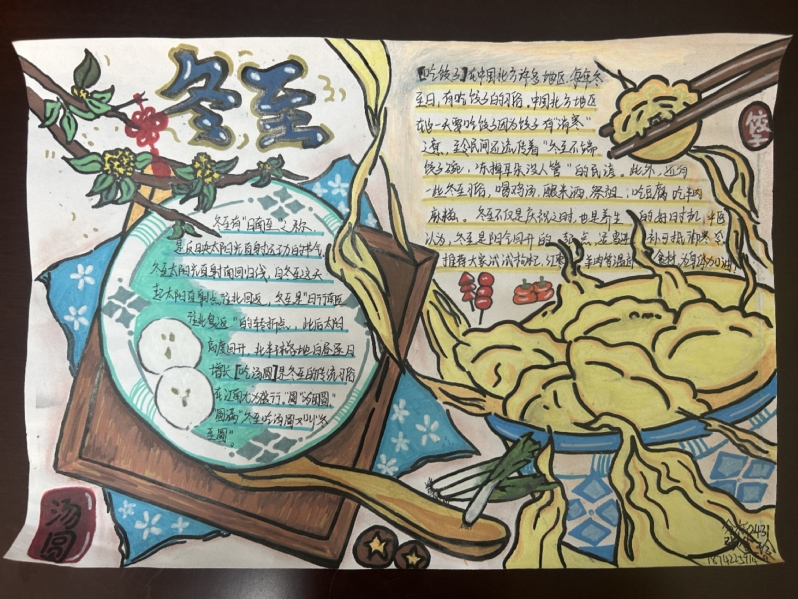 冬至
冬至有"日南至"之称
是反映太阳光直射运动的节气,
冬至太阳光直射南回归线,自冬至这天
起太阳直射点往北回返 冬至是"日行南至
往北复返"的转折点,此后太阳
高度回升,北半球各地白昼逐日
增长【吃汤圆】是冬至的传统习俗
在江南尤为盛行,"圆"
圆满"冬至吃汤圆又叫"冬
至圆"。
汤圆
【吃饺子】在中国北方许多地区,每年冬
至日,有吃饺子的习俗,中国北方地区
在这一天要吃饺子因为饺子有"消寒"
之意,至今民间还流传着"冬至不端
饺子碗,冻掉耳朵没人管"的民谣。此外,还有
一些冬至习俗,喝鸡汤,酿米酒,祭祖,吃豆腐,吃羊肉
冬至不仅是庆祝之时,也是养生的
认为,冬至是阳气回升的
推荐大家试试枸杞,红枣,羊肉等温
饺子